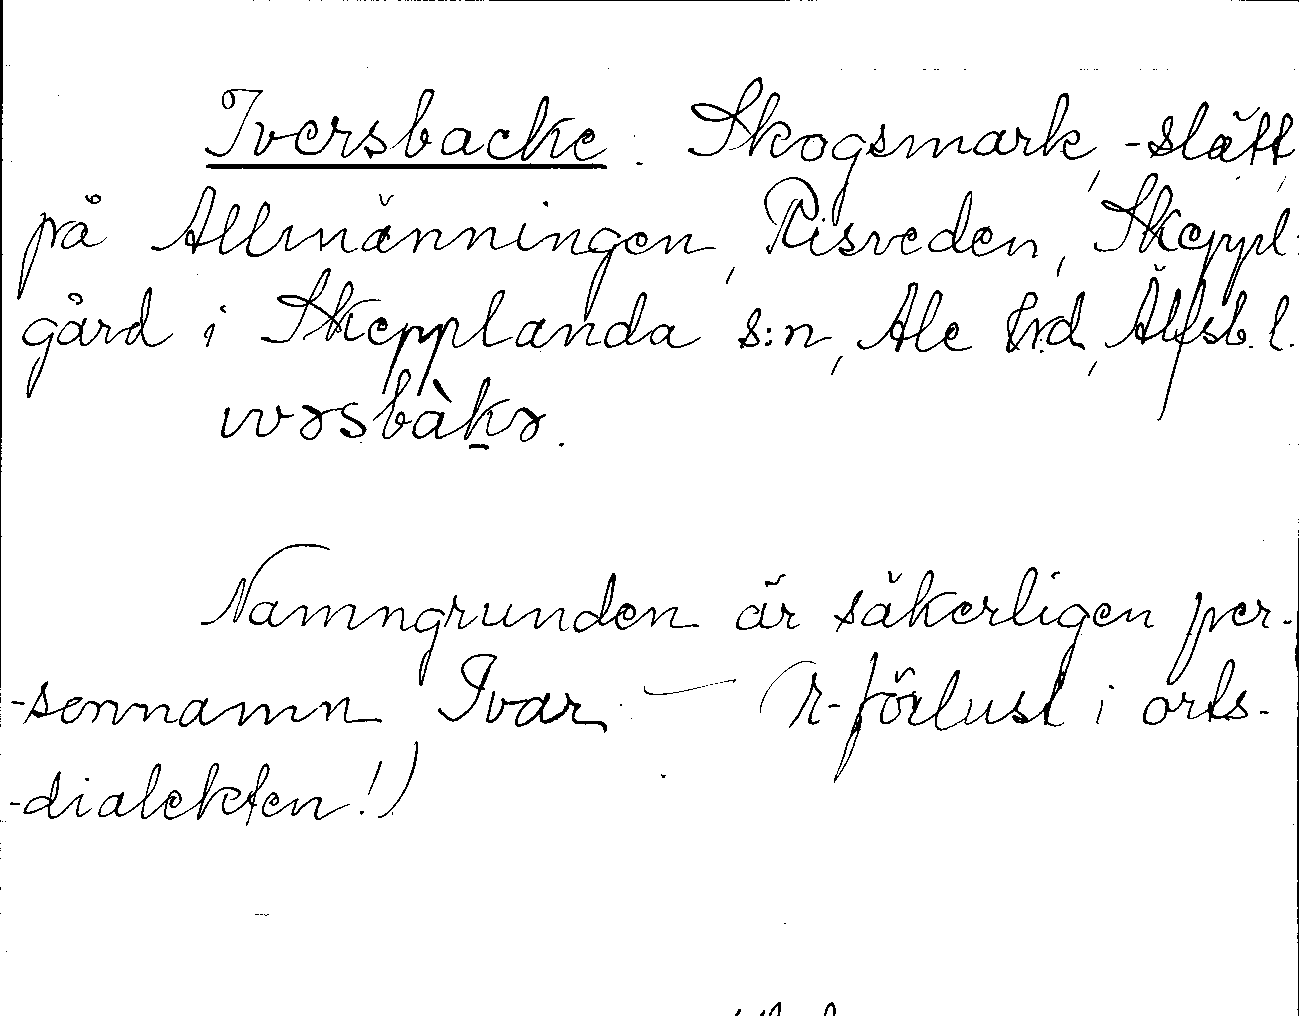 Iversbacke. Skogsmark, -slätt,
på Allmänningen, Risveden, Skeppl:
gård i Skepplanda s:n, Ale hrd, Älfsb. l.
ivərsbàkə.
Namngrunden är säkerligen per-
-sonnamn Ivar — (r-förlust i orts-
-dialekten!)